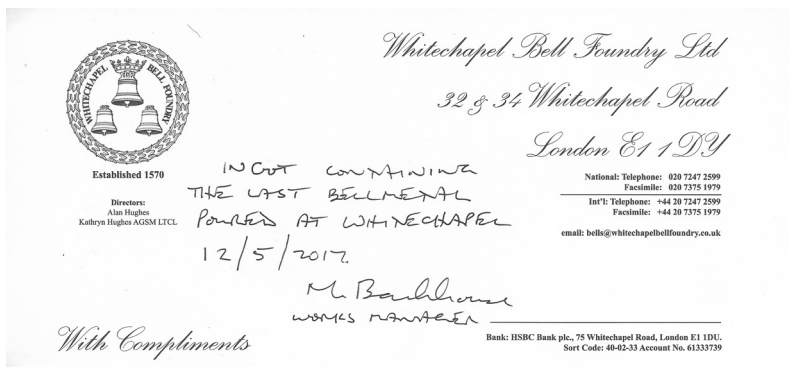 WHITECHAPEL BELL FOUNDRY
Established 1570
Directors:
Alan Hughes
Kathryn Hughes AGSM LTCL
Whitechapel Bell Foundry Ltd
32 & 34 Whitechapel Road
London E1 1DY
National: Telephone: 020 7247 2599
Facsimile: 020 7375 1979
Int'l: Telephone: +44 20 7247 2599
Facsimile: +44 20 7375 1979
email: bells@whitechapelbellfoundry.co.uk
INGOT CONTAINING
THE LAST BELLMETAL
POURED AT WHITECHAPEL
12/5/2017.
M. Backhouse
WORKS MANAGER
With Compliments
Bank: HSBC Bank plc., 75 Whitechapel Road, London E1 1DU.
Sort Code: 40-02-33 Account No. 61333739